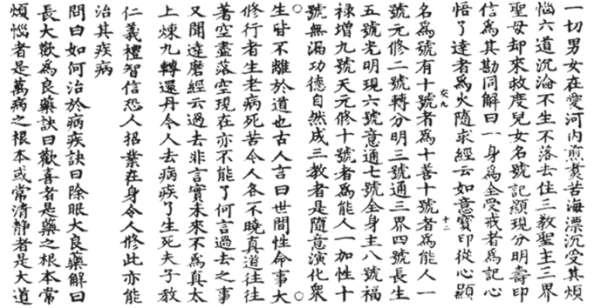 一切男女在愛河內煎煑苦海漂沉受其煩
惱六道沉淪不生不落去住三教聖主三界
聖母却來救度兒女名號記顯現分明壽印
信為其勘同解曰一身為金受戒者為記心
悟了達者為火隨求經云如意寶印從心顯
十二
名為號有十號者為十善十號者為能人一
號元修二號轉分明三號通三界四號長生
五號光明現六號意通七號全身主八號福
祿增九號天元修十號者為能人一加性十
號無漏功德自然成三教者是隨意演化衆
生皆不離於道也古人言曰世間性命事大
修行者生老病死苦令人各不曉真道往往
著空盡落空現在亦不能了何言過去之事
又開達磨經云過去非言實未來不為真太
上煉九轉還丹令人去病疾了生死夫子教
仁義禮智信恐人招業在身令人修此亦能
治其疾病
問曰如何治於病疾訣曰除眼大良藥解曰
長大歡為良藥訣曰歡喜者是藥之根本常
煩惱者是萬病之根本或常清靜者是大道